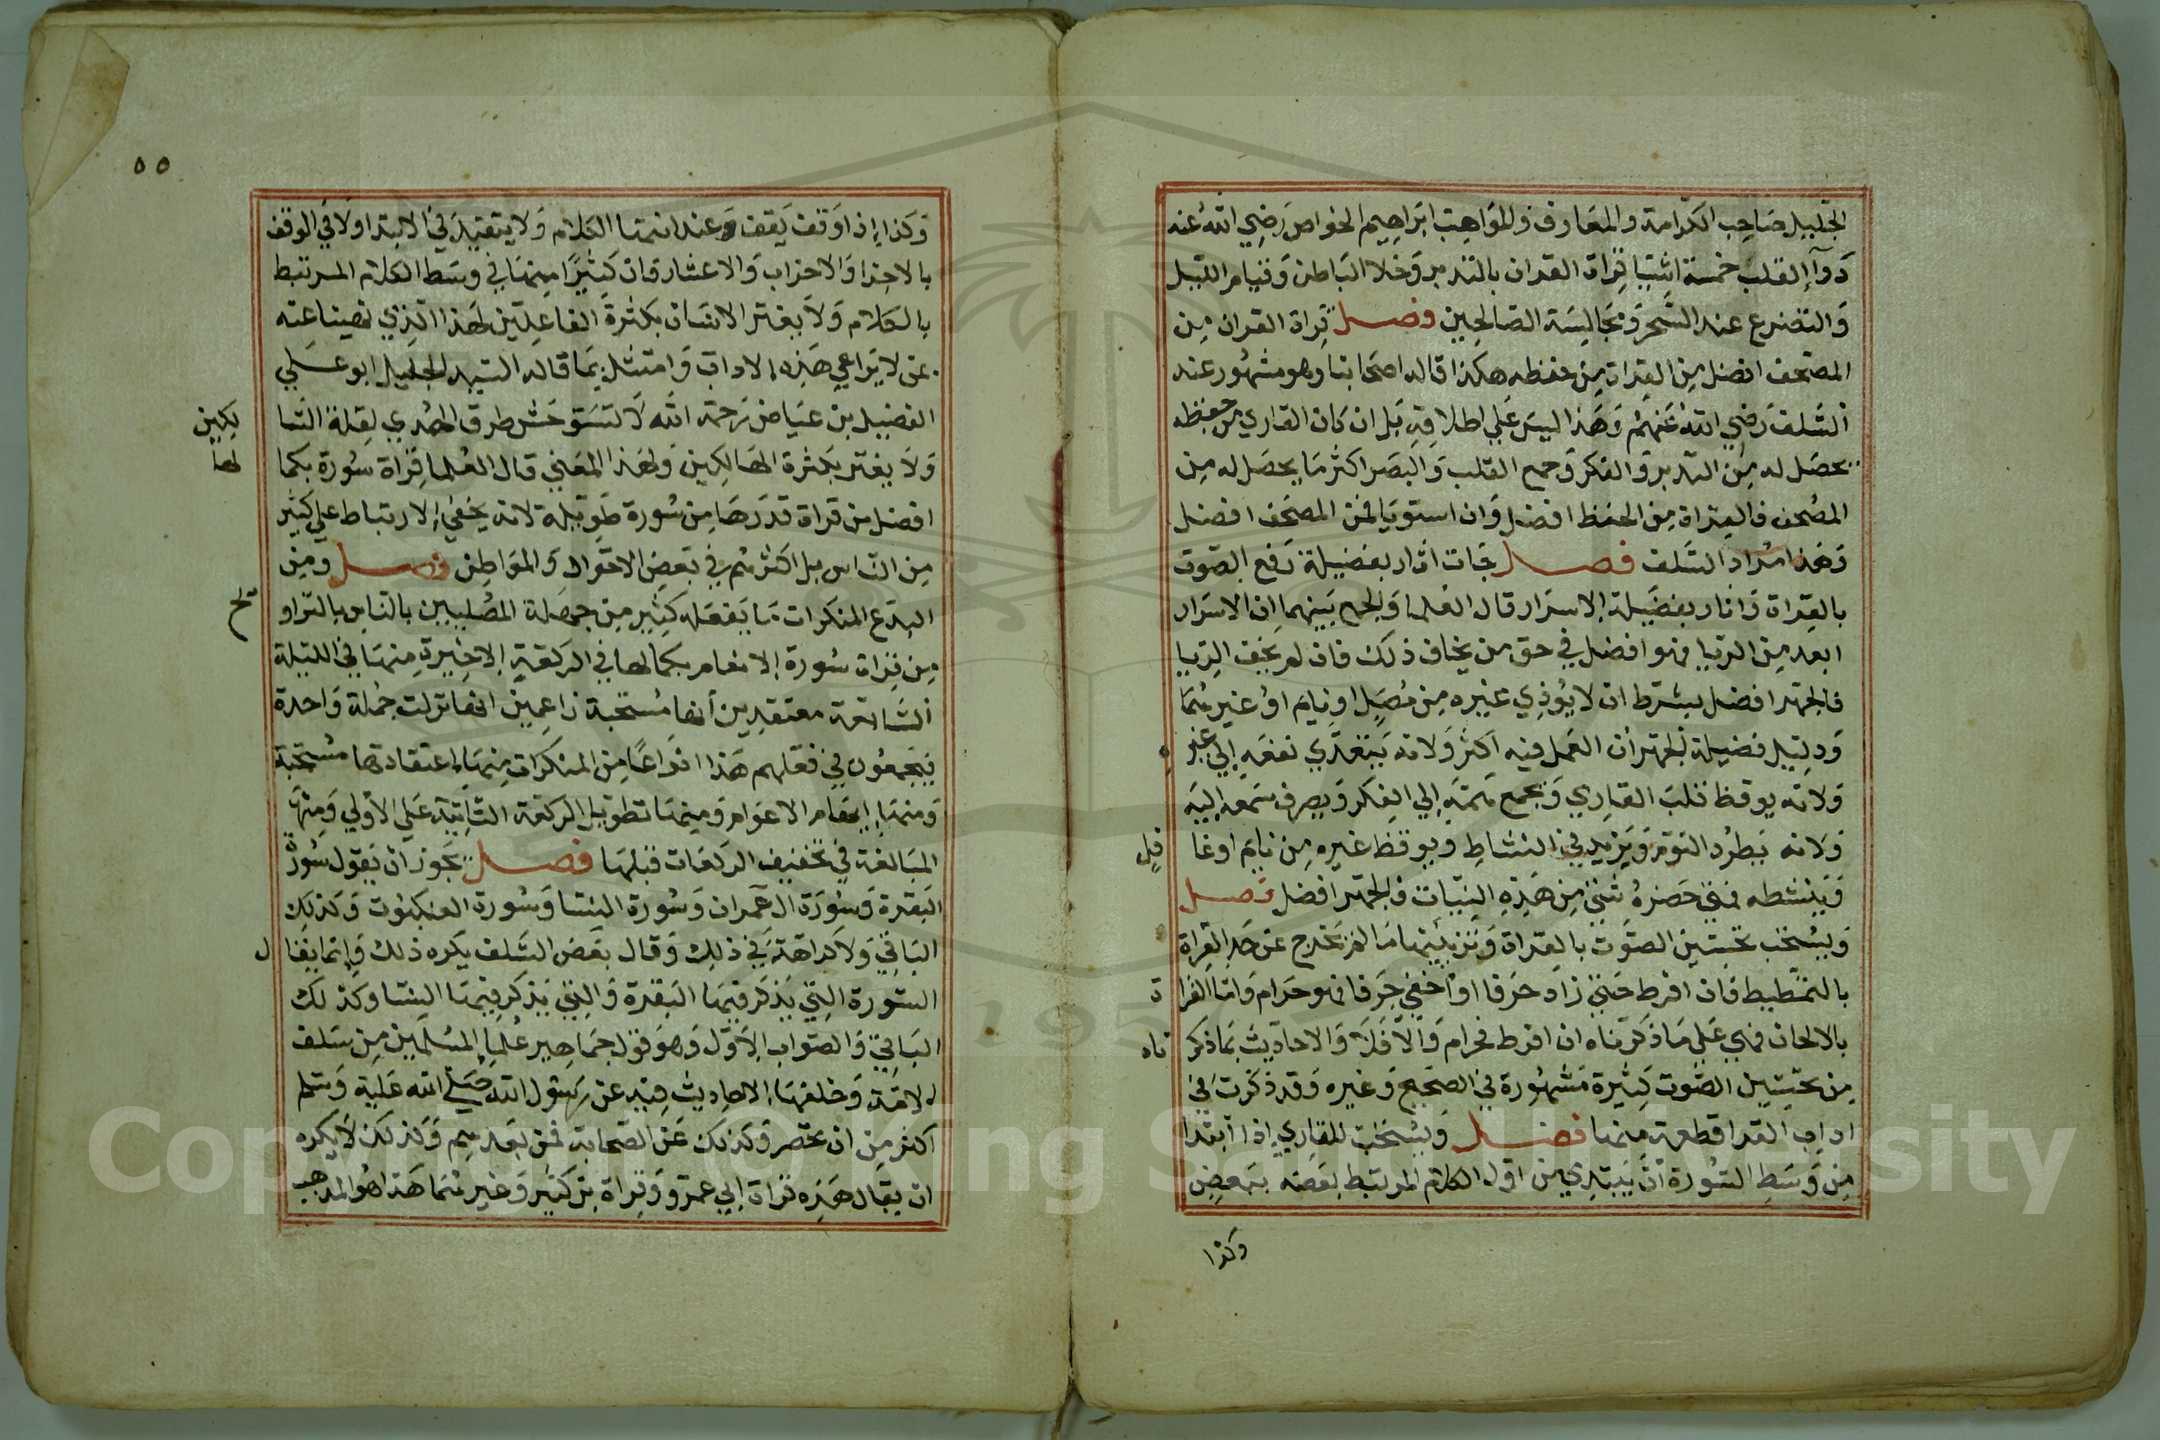 الجليل صاحب الكرامة والمعارف والمواهب ابراهيم الخواص رضي الله عنه
دوآ القلب خمسة اشيا قراة القران بالتدبر وخلا الباطن وقيام الليل
والتضرع عند السحر ومجالسة الصالحين فصل قراة القران من
المصحف افضل من القراة من حفظه هكذا قاله اصحابنا وهو مشهور عند
السلف رضي الله عنهم وهذا ليس على اطلاقه بل ان كان القاري من حفظه
يحصل له من التدبر والفكر وجمع القلب والبصر اكثر ما يحصل له من
المصحف فالقراة من الحفظ افضل وان استويا فمن المصحف افضل
وهذا مراد السلف فصل جات اثار بفضيلة رفع الصوت
بالقراة واثار بفضيلة الاسرار قال العلما والجمع بينهما ان الاسرار
ابعد من الريا فهو افضل في حق من يخاف ذلك فان لم يخف الريا
فالجهر افضل بشرط ان لا يوذي غيره من مصل او نايم او غيرهما
ودليل فضيلة الجهر ان العمل فيه اكثر ولانه يتعدي نفعه الي غير ه
ولانه يوقظ قلب القاري ويجمع همته الي الفكر ويصرف سمعه اليه
ولانه يطرد النوم ويزيد في النشاط ويوقظ غيره من نايم او غا فل
وينشطه فمتي حضره شي من هذه النيات فالجهر افضل فصل
ويستحب تحسين الصوت بالقراة وتزيينها ما لم تخرج عن حد القراة
بالتمطيط فان افرط حتي زاد حرفا او اخفي حرفا فهو حرام واما القرا ة
بالالحان فهي على ما ذكرناه ان افرط فحرام والا فلا والاحاديث بما ذكر ناه
من تحسين الصوت كثيرة مشهورة في الصحيح وغيره وقد ذكرت في
اداب القرا قطعة منها فصل ويستحب للقاري اذا ابتدا
من وسط السورة ان يبتدي من اول الكلام المرتبط بعضه ببعض
وكذا
٥٥
وكذا اذا وقف يقف وعند انتها الكلام ولا يتقيد في الابتدا ولا في الوقف
بالاجزا والاحزاب والاعشار فان كثيرا منها في وسط الكلام المرتبط
بالكلام ولا يغتر الانسان بكثرة الفاعلين لهذا الذي نهينا عنه
ممن لا يراعي هذه الاداب وامتثل بما قاله السيد الجليل ابو علي
الفضيل بن عياض رحمه الله لا تستوحش طرق الهدي لقلة السا لكين
ولا يغتر بكثرة الهالكين ولهذ المعني قال العلما قراة سورة بكما لها
افضل من قراة قدرها من سورة طويلة لانه يخفي الارتباط علي كثير
من الناس بل اكثرهم في بعض الاحوال والمواطن فصل ومن
البدع المنكرات ما يفعله كثير من جهلة المصليين بالناس بالتراو يح
من قراة سورة الانعام بكمالها في الركعة الاخيرة منها في الليلة
السابعة معتقدين أنها مستحبة زاعمين انها نزلت جملة واحدة
فيجمعون في فعلهم هذا انواعا من المنكرات منها اعتقادها مستحبة
ومنها ايهام الاعوام ومنها تطويل الركعة الثانية على الأولي ومنها
المبالغة في تخفيف الركعات قبلها فصل يجوز ان يقول سورة
البقرة وسورة ال عمران وسورة النسا وسورة العنكبوت وكذلك
الباقي ولا كراهة في ذلك وقال بعض السلف يكره ذلك وانما يقا ل
السورة التي يذكر فيها البقرة والتي يذكر فيها النسا وكذلك
الباقي والصواب الأول وهو قول جماهير علما المسلمين من سلف
الامة وخلفها والاحاديث فيه عن رسول الله صلي الله عليه وسلم
اكثر من ان تحصر وكذلك عن الصحابة فمن بعدهم وكذلك لا يكره
ان يقال هذه قراة ابي عمرو وقراة بن كثير وغيرهما هذا هو المذهب
Copyright © King Saud University
1957